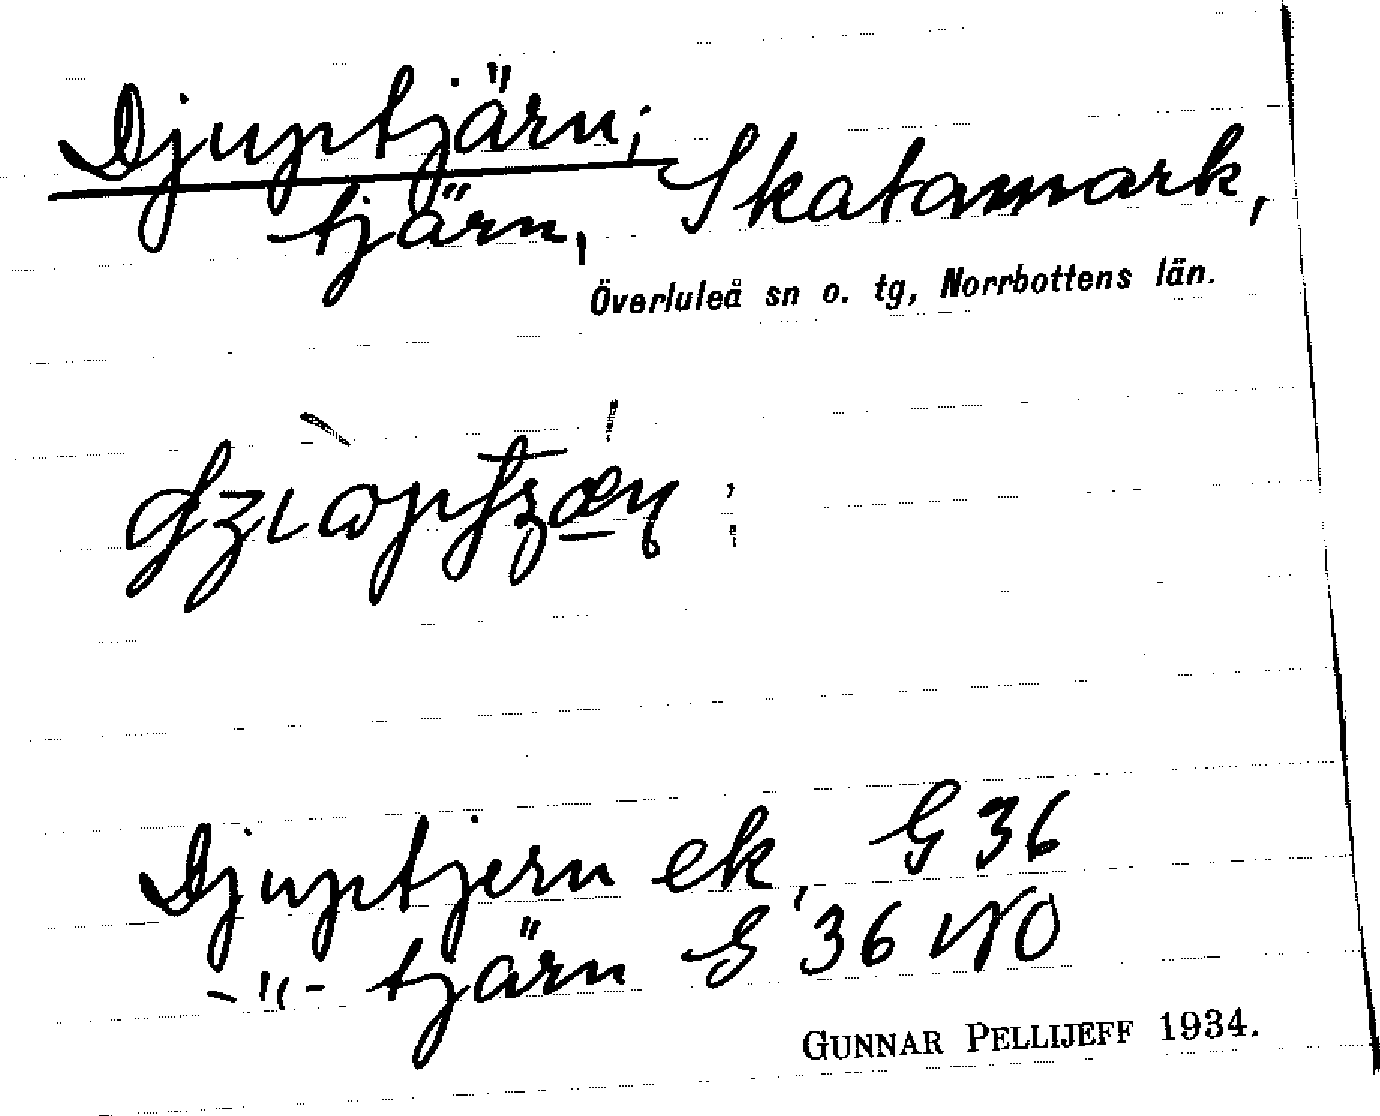 Djuptjärn;
tjärn, Skatamark,
Överluleå sn o. tg, Norrbottens län.
Djuptjern ek, G 36
-"- tjärn G 36 NO
GUNNAR PELLIJEFF 1934.